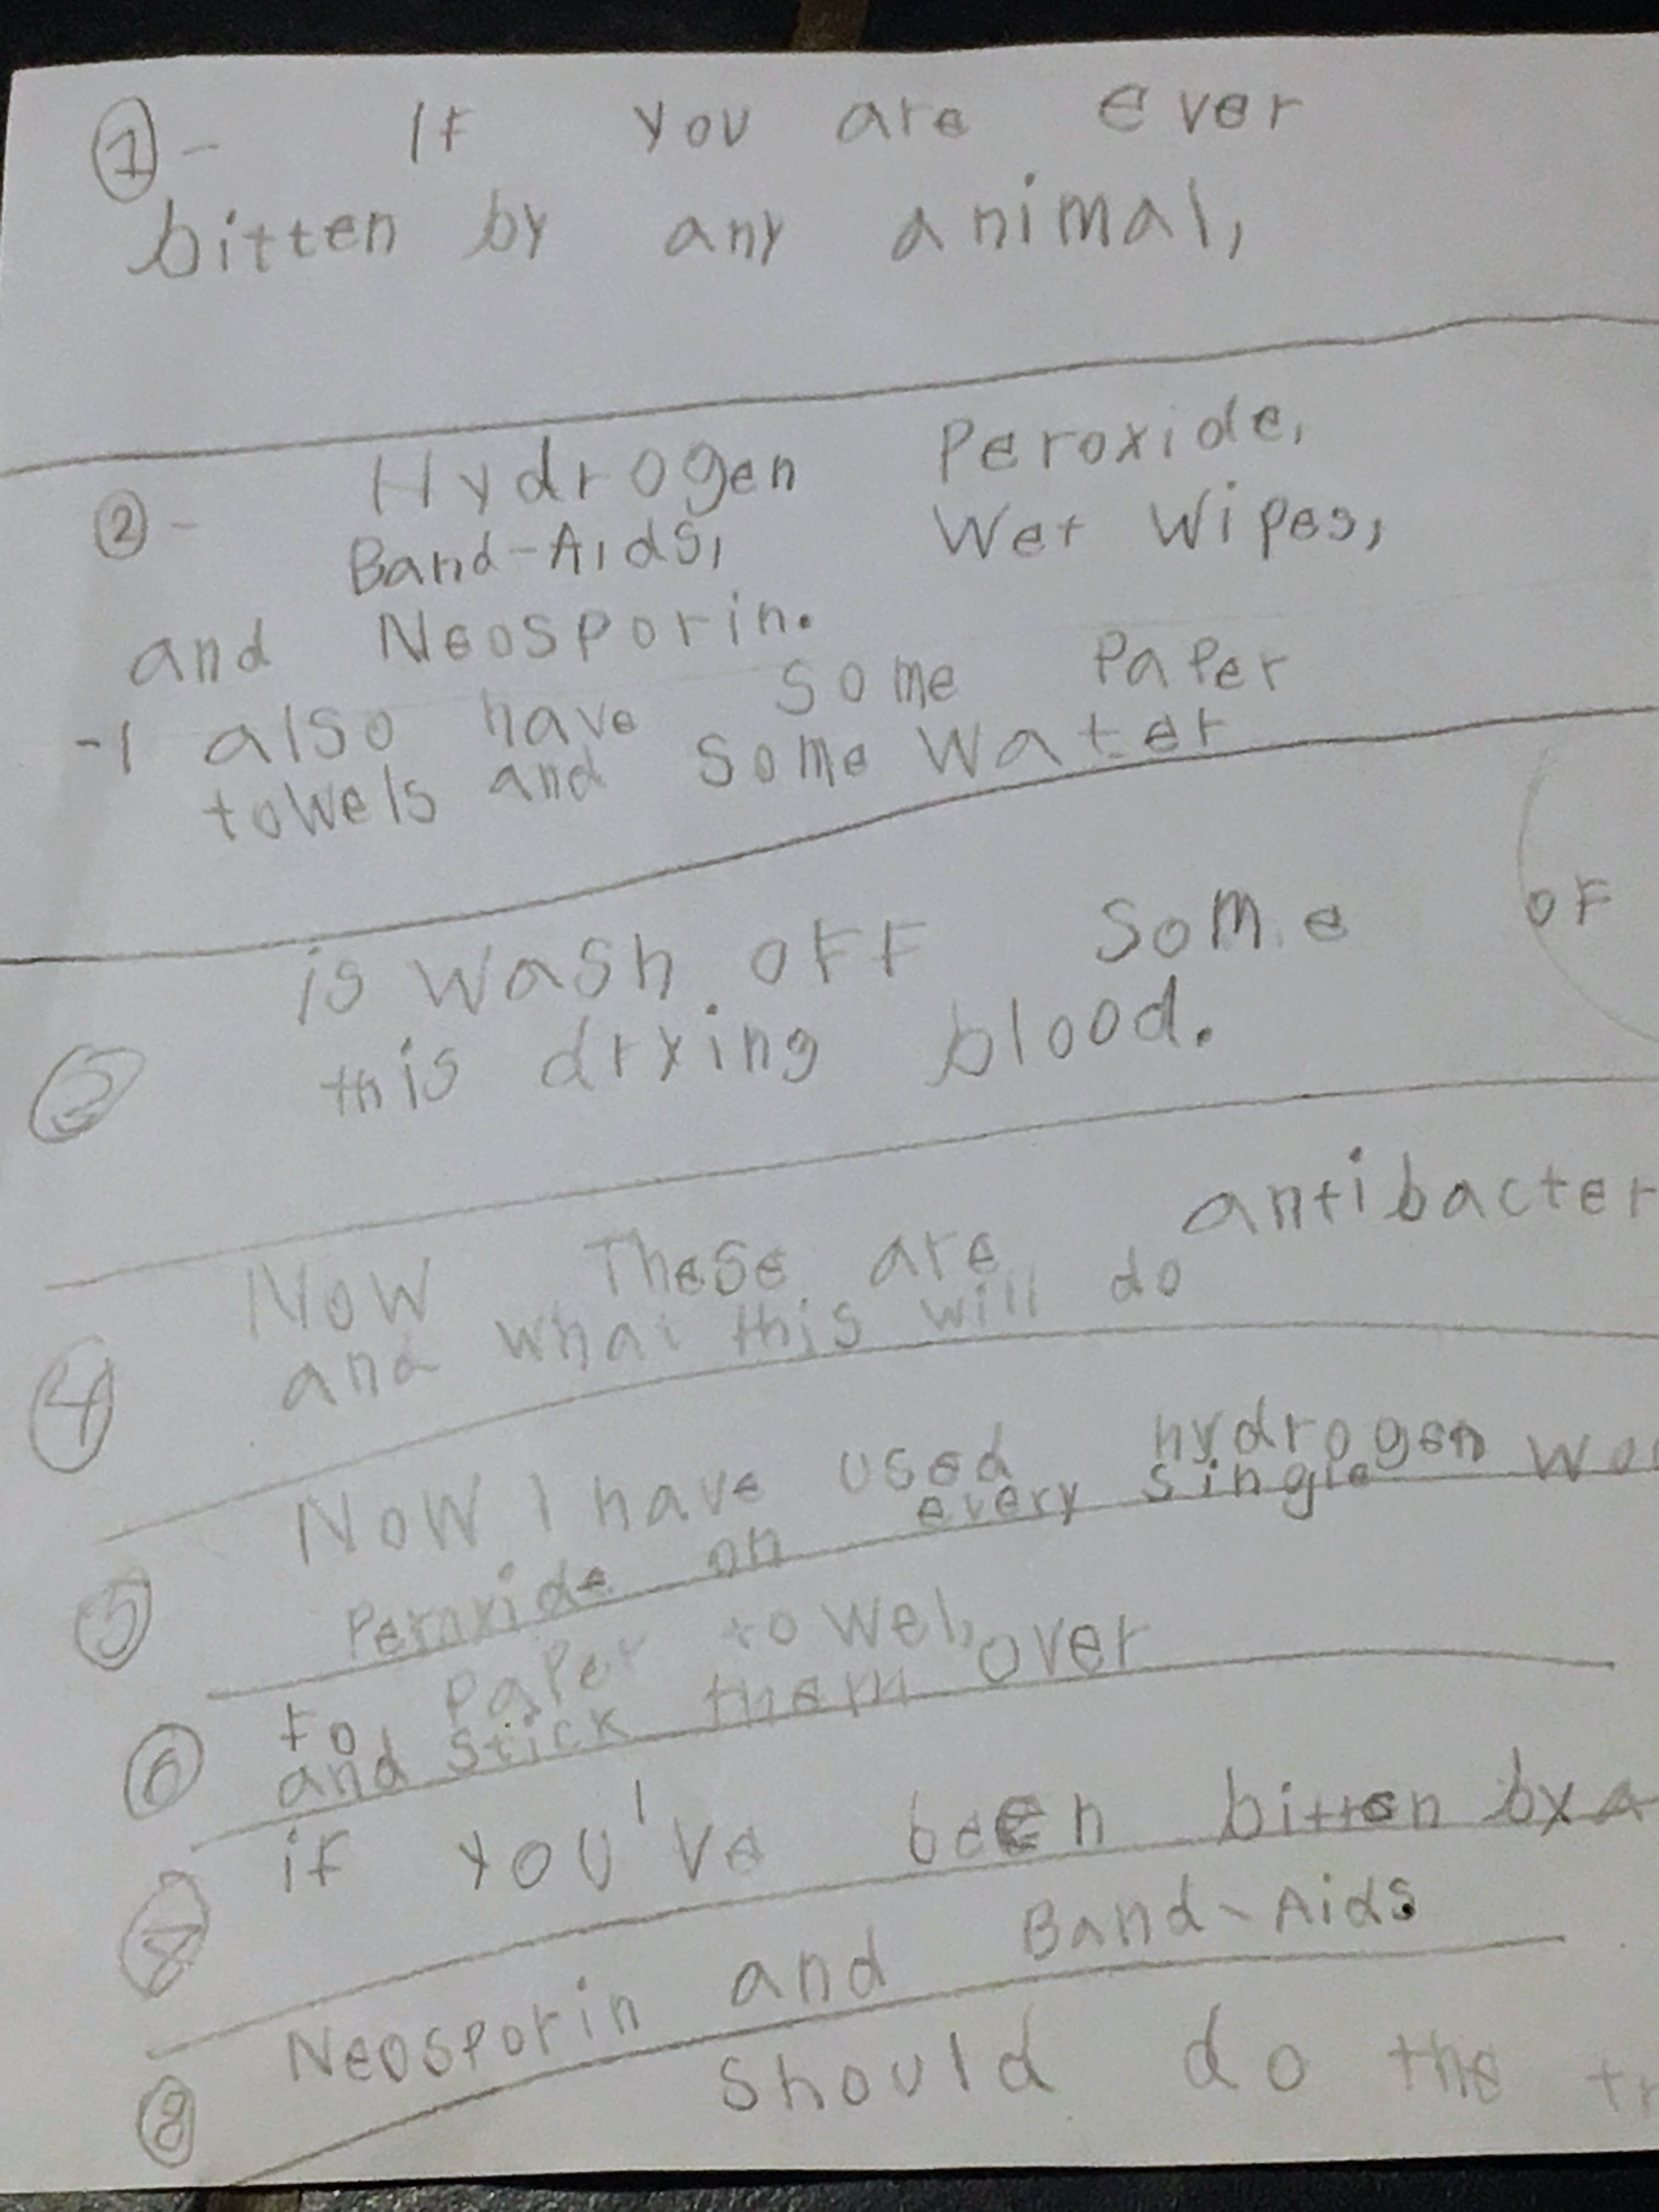 ① - If you are ever
bitten by any animal,
② - Hydrogen Peroxide,
Band-Aids, Wet Wipes,
and Neosporin.
-I also have some Paper
towels and some water
③ is wash off some of
this drying blood.
④ Now These are antibacter
and what this will do
⑤ Now I have used hydrogen
Peroxide on every single wo
⑥ to Paper towel,
and stick them over
⑦ if you've been bitten by a
⑧ Neosporin and Band-Aids
should do the tr